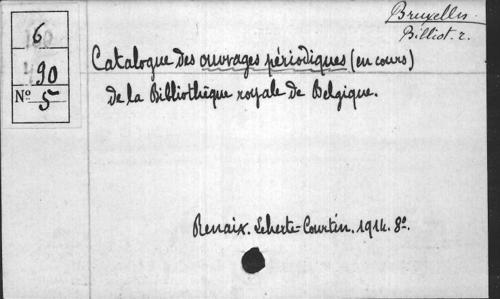 Bruxelles.
Billiot. r.
6
90
Nº 5
Catalogue des ouvrages périodiques (en cours)
de la Bibliothèque royale de Belgique.
Renaix. Leherte-Courtin. 1914. 8º.